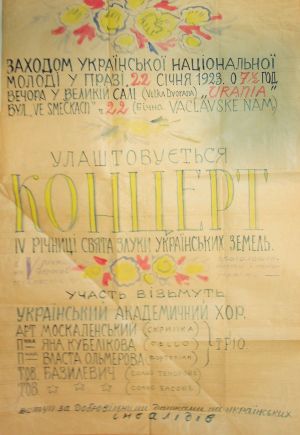 ЗАХОДОМ УКРАЇНСЬКОЇ НАЦІОНАЛЬНОЇ
МОЛОДІ У ПРАЗІ, 22 СІЧНЯ 1923. О 7½ ГОД.
ВЕЧОРА У ВЕЛИКІЙ САЛІ (Velká Dvorana) „URANIA"
ВУЛ. „VE SMEČKACH" Ч. 22 (БІЧНА VÁCLAVSKÉ NÁM)
УЛАШТОВУЄТЬСЯ
КОНЦЕРТ
IV РІЧНИЦІ СВЯТА ЗЛУКИ УКРАЇНСЬКИХ ЗЕМЕЛЬ.
УЧАСТЬ ВІЗЬМУТЬ
УКРАЇНСЬКИЙ АКАДЕМИЧНИЙ ХОР.
АРТ МОСКАЛЕНСЬКИЙ (СКРИПКА)
П-на ЯНА КУБЕЛІКОВА (CELLO) ТРІО.
П-на ВЛАСТА ОЛЬМЕРОВА (ФОРТЕПІАН)
ТОВ. БАЗИЛЕВИЧ (СОЛЬО ТЕНОРОВЕ)
ТОВ. ☆ ☆ ☆ (СОЛЬО БАСОВЕ)
вступ за добровільними датками на українських
інвалідів